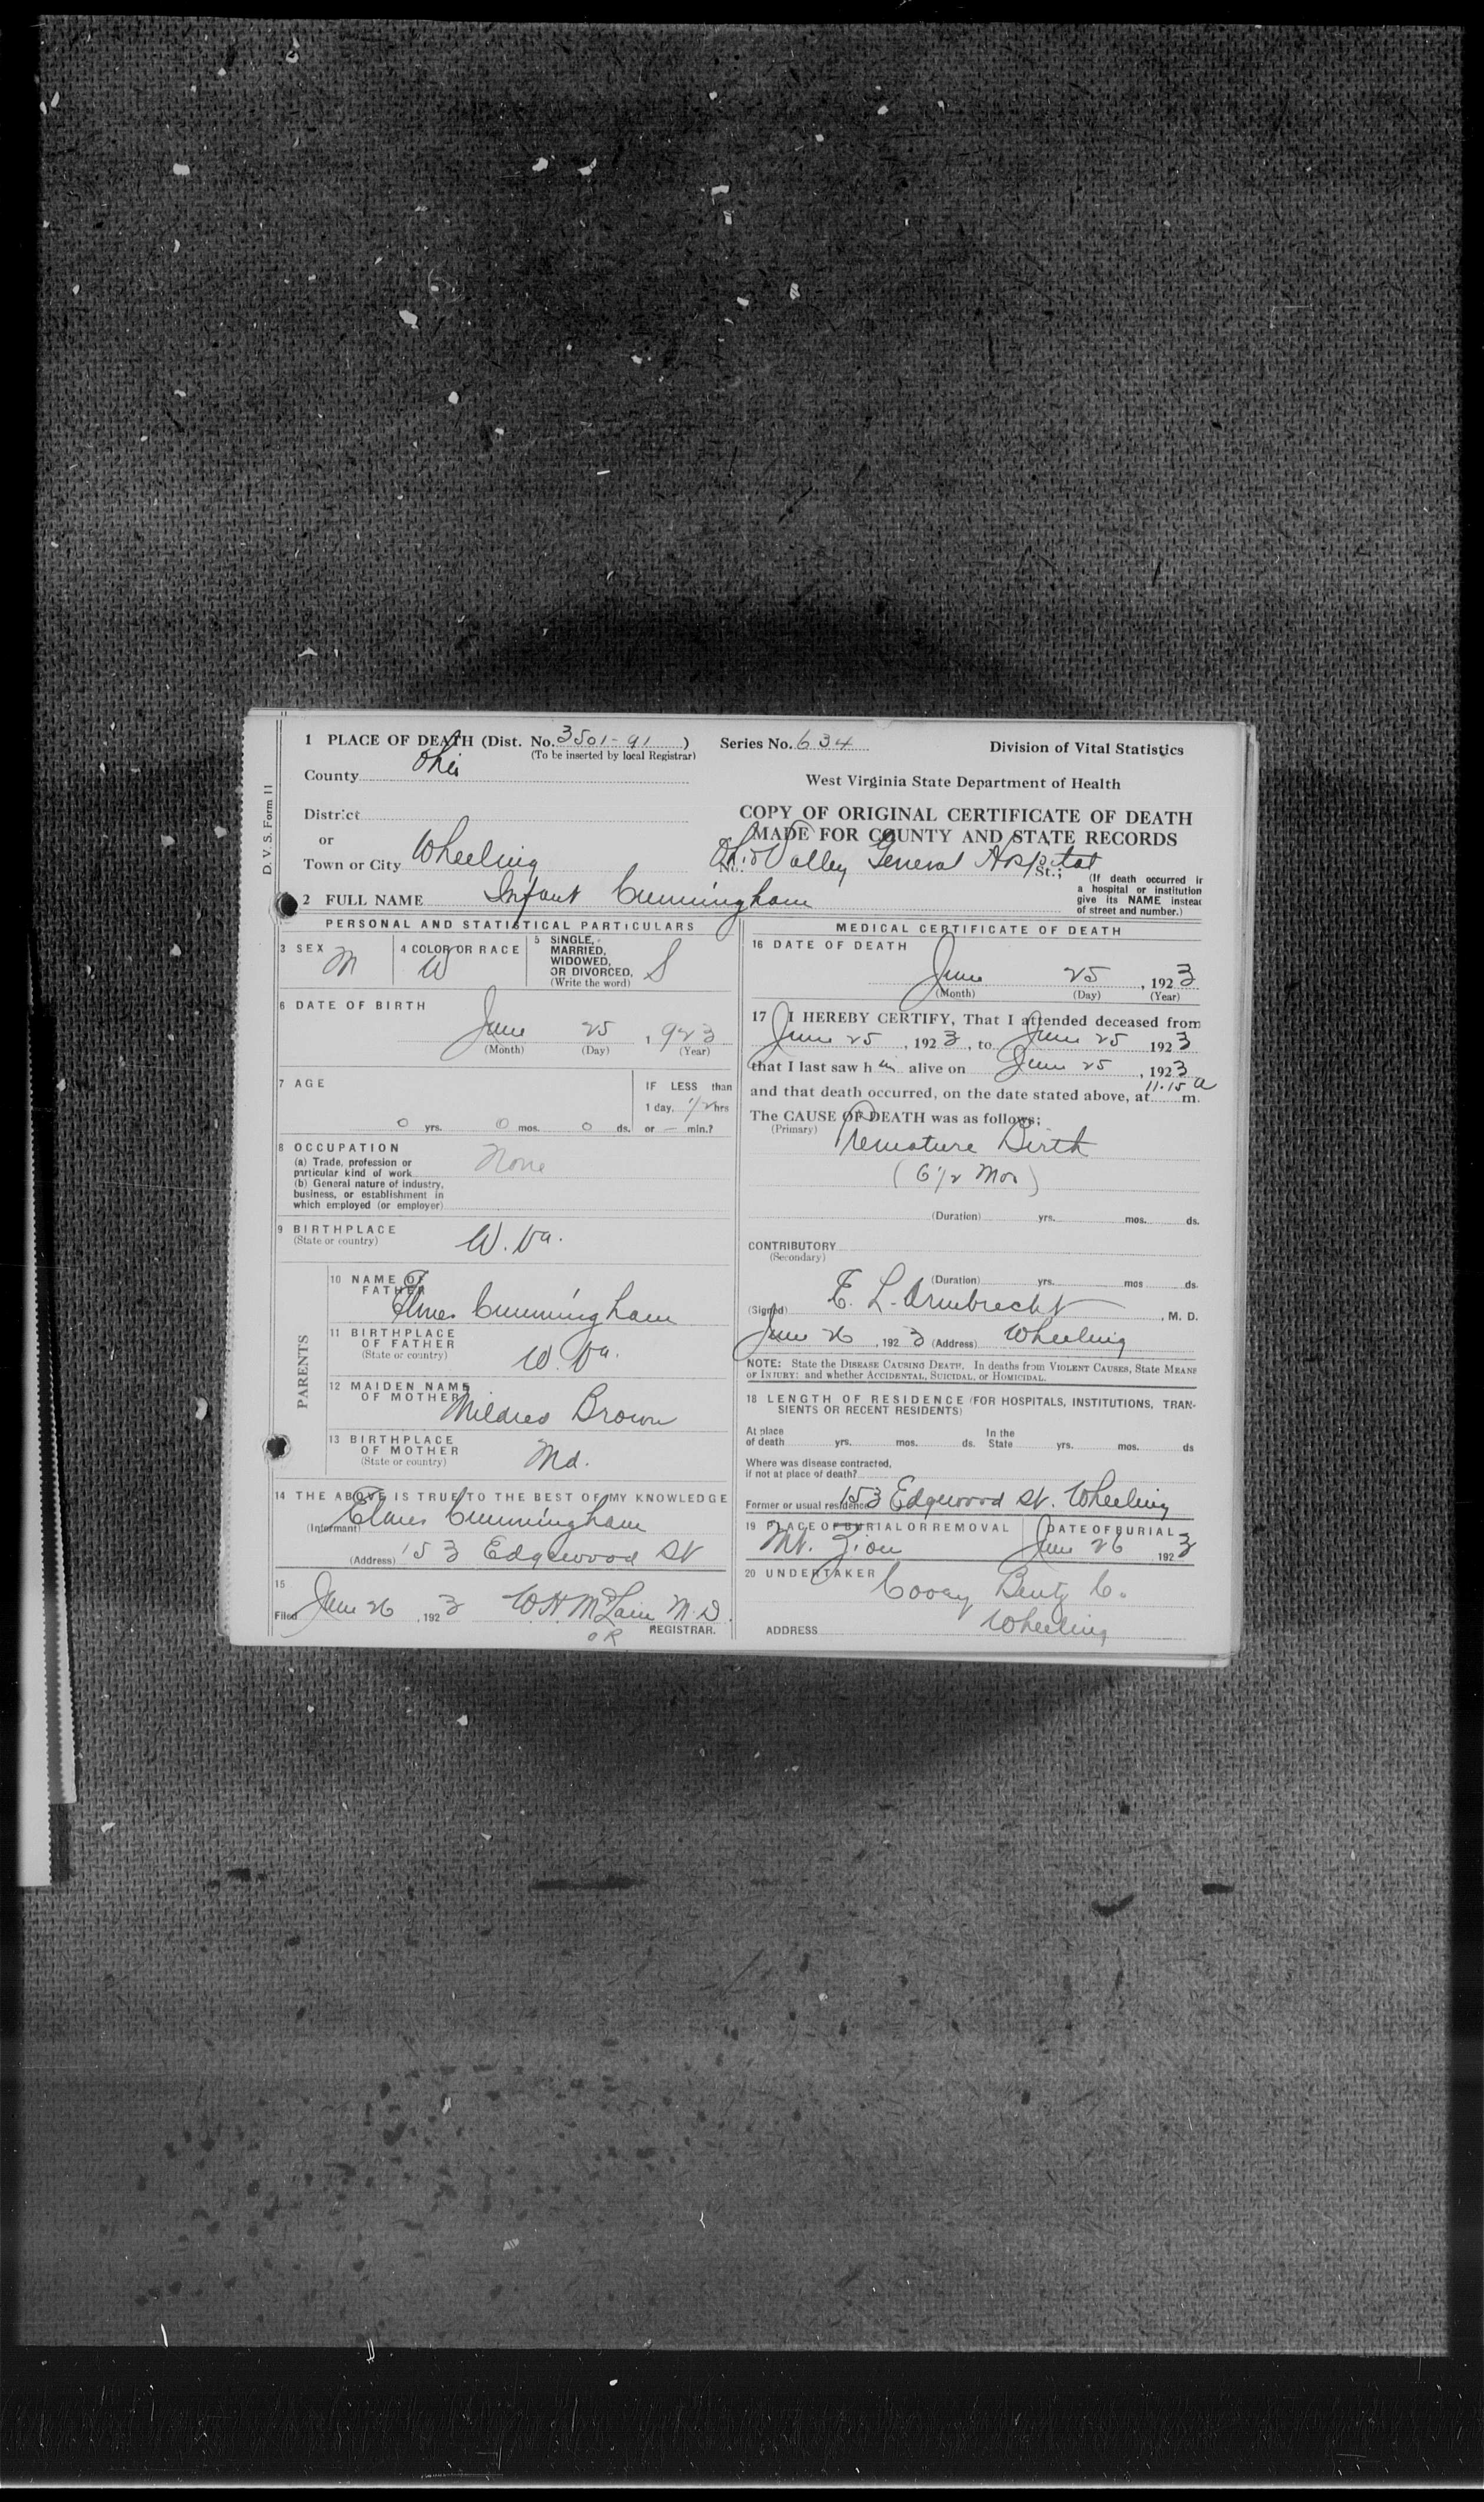 D. V. S. Form 11
1 PLACE OF DEATH (Dist. No. 3501-91 )
(To be inserted by local Registrar)
Series No. 634
Division of Vital Statistics
County Ohio
West Virginia State Department of Health
District
COPY OF ORIGINAL CERTIFICATE OF DEATH
MADE FOR COUNTY AND STATE RECORDS
or
Town or City Wheeling
No. Ohio Valley General Hospital St.;
(If death occurred in
a hospital or institution
give its NAME instead
of street and number.)
2 FULL NAME Infant Cunningham
PERSONAL AND STATISTICAL PARTICULARS
3 SEX M
4 COLOR OR RACE W
5 SINGLE,
MARRIED,
WIDOWED,
OR DIVORCED,
(Write the word) S
6 DATE OF BIRTH
June 25 1923
(Month) (Day) (Year)
7 AGE
IF LESS than
1 day, 1/2 hrs
0 yrs. 0 mos. 0 ds. or — min.?
8 OCCUPATION
(a) Trade, profession or
particular kind of work None
(b) General nature of industry,
business, or establishment in
which employed (or employer)
9 BIRTHPLACE
(State or country) W. Va.
PARENTS
10 NAME OF
FATHER Elmer Cunningham
11 BIRTHPLACE
OF FATHER
(State or country) W. Va.
12 MAIDEN NAME
OF MOTHER Mildred Brown
13 BIRTHPLACE
OF MOTHER
(State or country) Md.
14 THE ABOVE IS TRUE TO THE BEST OF MY KNOWLEDGE
(Informant) Elmer Cunningham
(Address) 153 Edgewood St
15
Filed June 26, 1923 W H McLain M.D.
OR REGISTRAR.
MEDICAL CERTIFICATE OF DEATH
16 DATE OF DEATH
June 25, 1923
(Month) (Day) (Year)
17 I HEREBY CERTIFY, That I attended deceased from
June 25, 1923, to June 25 1923
that I last saw h im alive on June 25, 1923
and that death occurred, on the date stated above, at 11.15 a m.
The CAUSE OF DEATH was as follows;
(Primary) Premature Birth
(6 1/2 Mos)
(Duration) yrs. mos. ds.
CONTRIBUTORY
(Secondary)
(Duration) yrs. mos. ds.
(Signed) E. L. Armbrecht, M. D.
June 26, 1923 (Address) Wheeling
NOTE: State the DISEASE CAUSING DEATH. In deaths from VIOLENT CAUSES, State MEANS
OF INJURY: and whether ACCIDENTAL, SUICIDAL, or HOMICIDAL.
18 LENGTH OF RESIDENCE (FOR HOSPITALS, INSTITUTIONS, TRAN-
SIENTS OR RECENT RESIDENTS)
At place
of death yrs. mos. ds.
In the
State yrs. mos. ds
Where was disease contracted,
if not at place of death?
Former or usual residence 153 Edgewood St. Wheeling
19 PLACE OF BURIAL OR REMOVAL
Mt. Zion
DATE OF BURIAL
June 26 1923
20 UNDERTAKER Cooey Bentz Co.
ADDRESS Wheeling